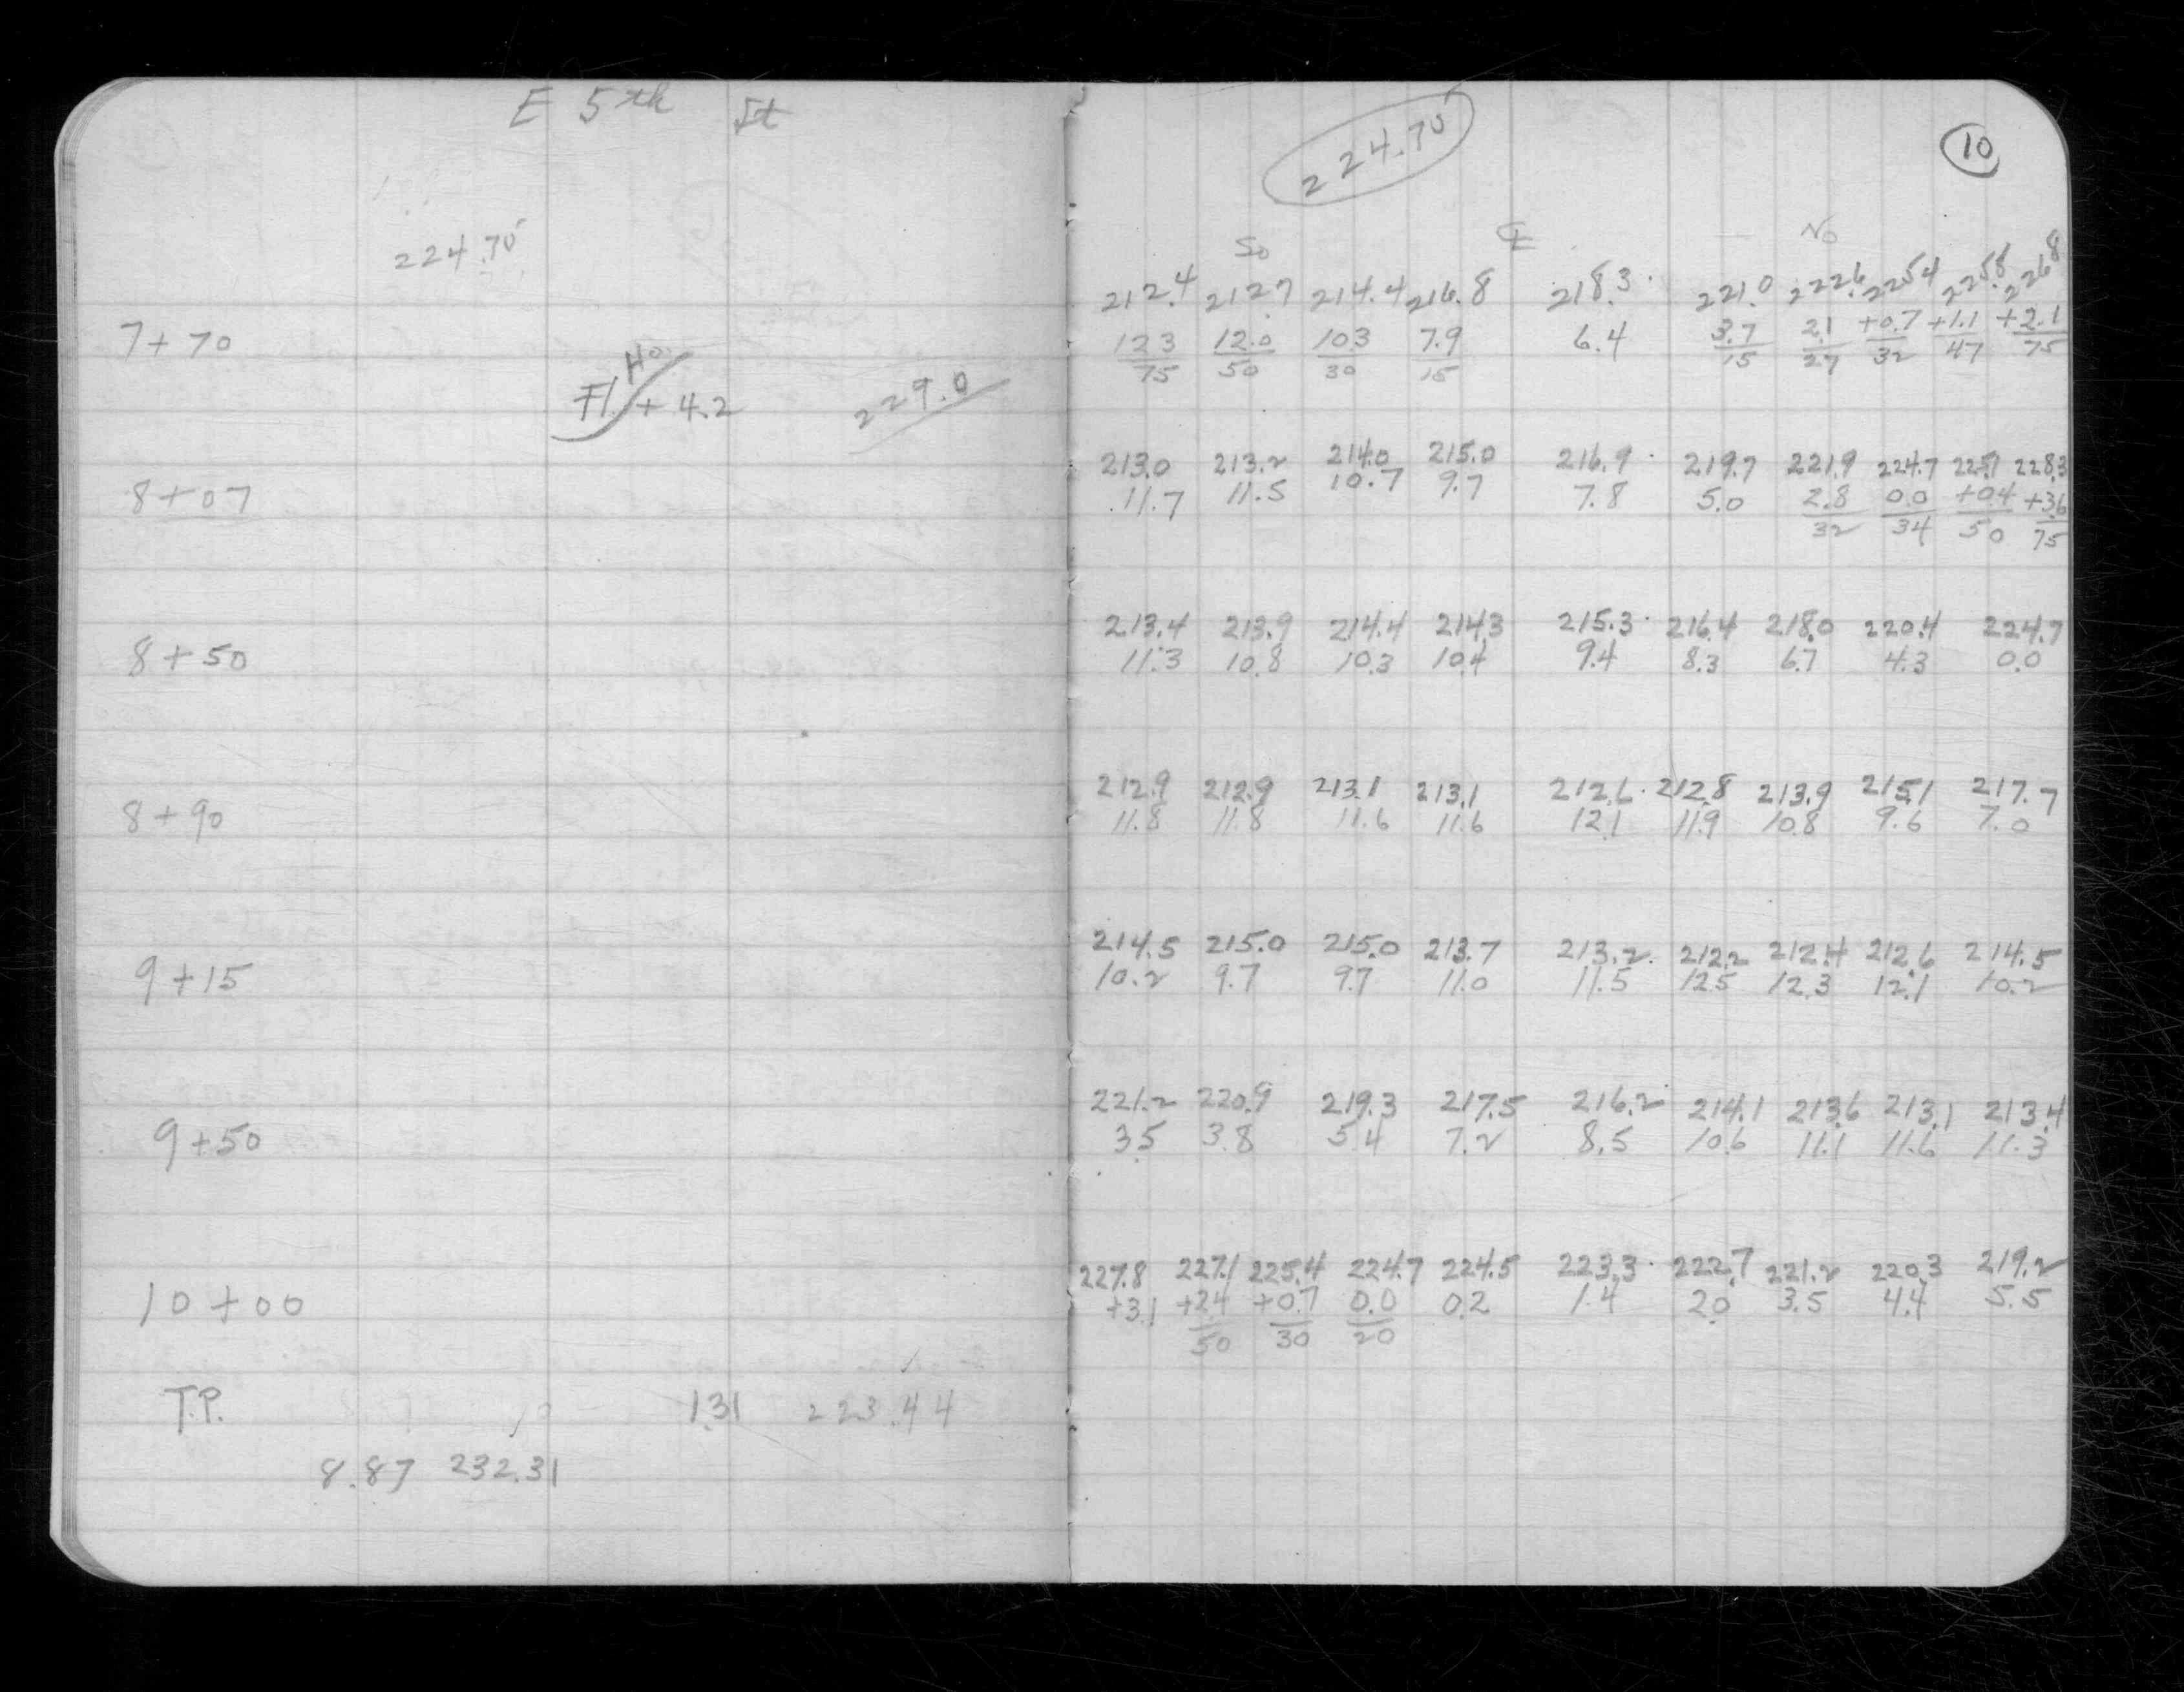 E 5th St
224.75
7+70
Fl. Ho + 4.2 229.0
8+07
8+50
8+90
9+15
9+50
10+00
T.P. 1.31 223.44
8.87 232.31
224.75
10
So ℄ No
212.4 212.7 214.4 216.8 218.3 221.0 222.6 225.4 225.8 226.8
12.3 12.0 10.3 7.9 6.4 3.7 2.1 +0.7 +1.1 +2.1
75 50 30 15 15 27 32 47 75
213.0 213.2 214.0 215.0 216.9 219.7 221.9 224.7 225.1 228.3
11.7 11.5 10.7 9.7 7.8 5.0 2.8 0.0 +0.4 +3.6
32 34 50 75
213.4 213.9 214.4 214.3 215.3 216.4 218.0 220.4 224.7
11.3 10.8 10.3 10.4 9.4 8.3 6.7 4.3 0.0
212.9 212.9 213.1 213.1 212.6 212.8 213.9 215.1 217.7
11.8 11.8 11.6 11.6 12.1 11.9 10.8 9.6 7.0
214.5 215.0 215.0 213.7 213.2 212.2 212.4 212.6 214.5
10.2 9.7 9.7 11.0 11.5 12.5 12.3 12.1 10.2
221.2 220.9 219.3 217.5 216.2 214.1 213.6 213.1 213.4
3.5 3.8 5.4 7.2 8.5 10.6 11.1 11.6 11.3
227.8 227.1 225.4 224.7 224.5 223.3 222.7 221.2 220.3 219.2
+3.1 +2.4 +0.7 0.0 0.2 1.4 2.0 3.5 4.4 5.5
50 30 20